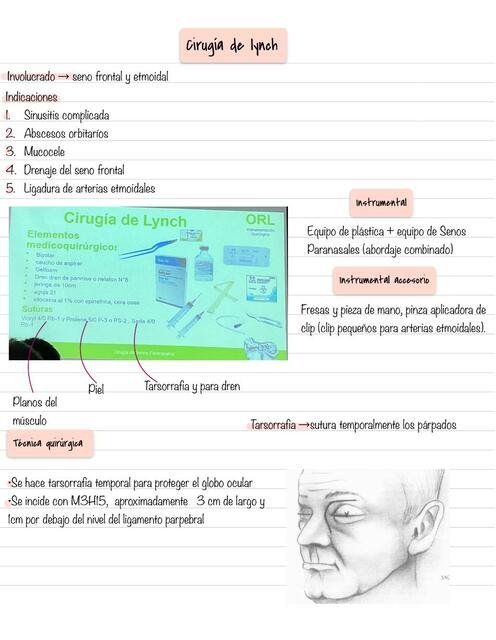 Cirugía de lynch
Involucrado → seno frontal y etmoidal
Indicaciones
1. Sinusitis complicada
2. Abscesos orbitarios
3. Mucocele
4. Drenaje del seno frontal
5. Ligadura de arterias etmoidales
Instrumental
Equipo de plástica + equipo de Senos
Paranasales (abordaje combinado)
Instrumental accesorio
Fresas y pieza de mano, pinza aplicadora de
clip (clip pequeños para arterias etmoidales).
Cirugía de Lynch
ORL
Elementos
medicoquirúrgicos
• Bipolar
• caucho de aspirar
• Gelfoam
• Dren dren de penrose o nelaton N°8
• jeringa de 10cm
• aguja 21
Suturas
Vicryl 4/0 Rb-1 y Prolene 5/0 P-3 o PS-2, Seda 4/0
Rb-1
Planos del
músculo
Piel
Tarsorrafia y para dren
Tarsorrafia → sutura temporalmente los párpados
Técnica quirúrgica
•Se hace tarsorrafia temporal para proteger el globo ocular
•Se incide con M3H15, aproximadamente 3 cm de largo y
1cm por debajo del nivel del ligamento parpebral